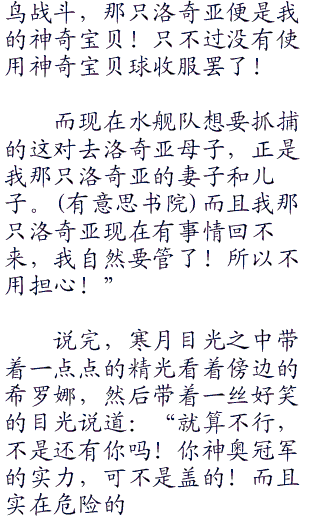 鸟战斗，那只洛奇亚便是我
的神奇宝贝！只不过没有使
用神奇宝贝球收服罢了！
而现在水舰队想要抓捕
的这对去洛奇亚母子，正是
我那只洛奇亚的妻子和儿
子。(有意思书院)而且我那
只洛奇亚现在有事情回不
来，我自然要管了！所以不
用担心！”
说完，寒月目光之中带
着一点点的精光看着傍边的
希罗娜，然后带着一丝好笑
的目光说道：“就算不行，
不是还有你吗！你神奥冠军
的实力，可不是盖的！而且
实在危险的